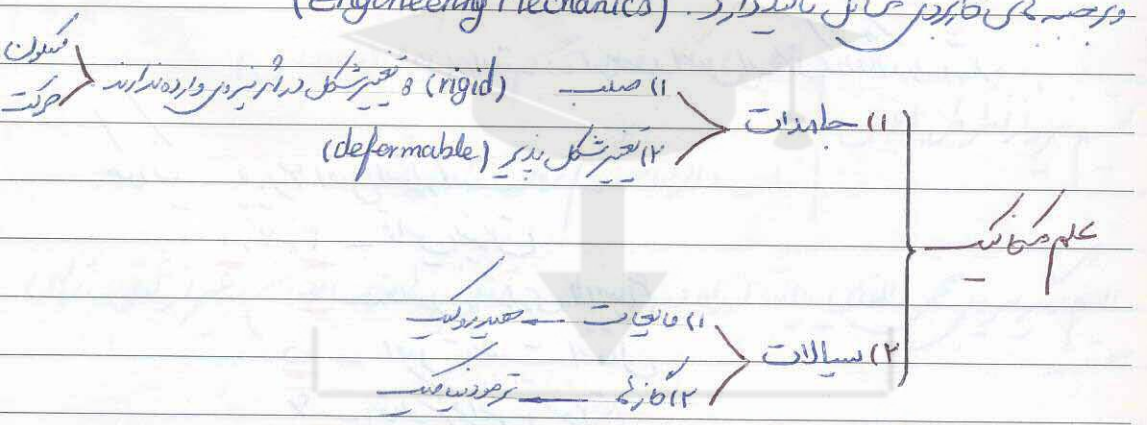 و جنبه های کاربردی مسائل تاکید دارد. (Engineering Mechanics)
علم مکانیک
۱) جامدات
۱) صلب (rigid) : تغییر شکل در اثر نیروی وارده ندارند
سکون
حرکت
۲) تغییر شکل پذیر (defermable)
۲) سیالات
۱) مایعات ← هیدرولیک
۲) گازها ← ترمودینامیک